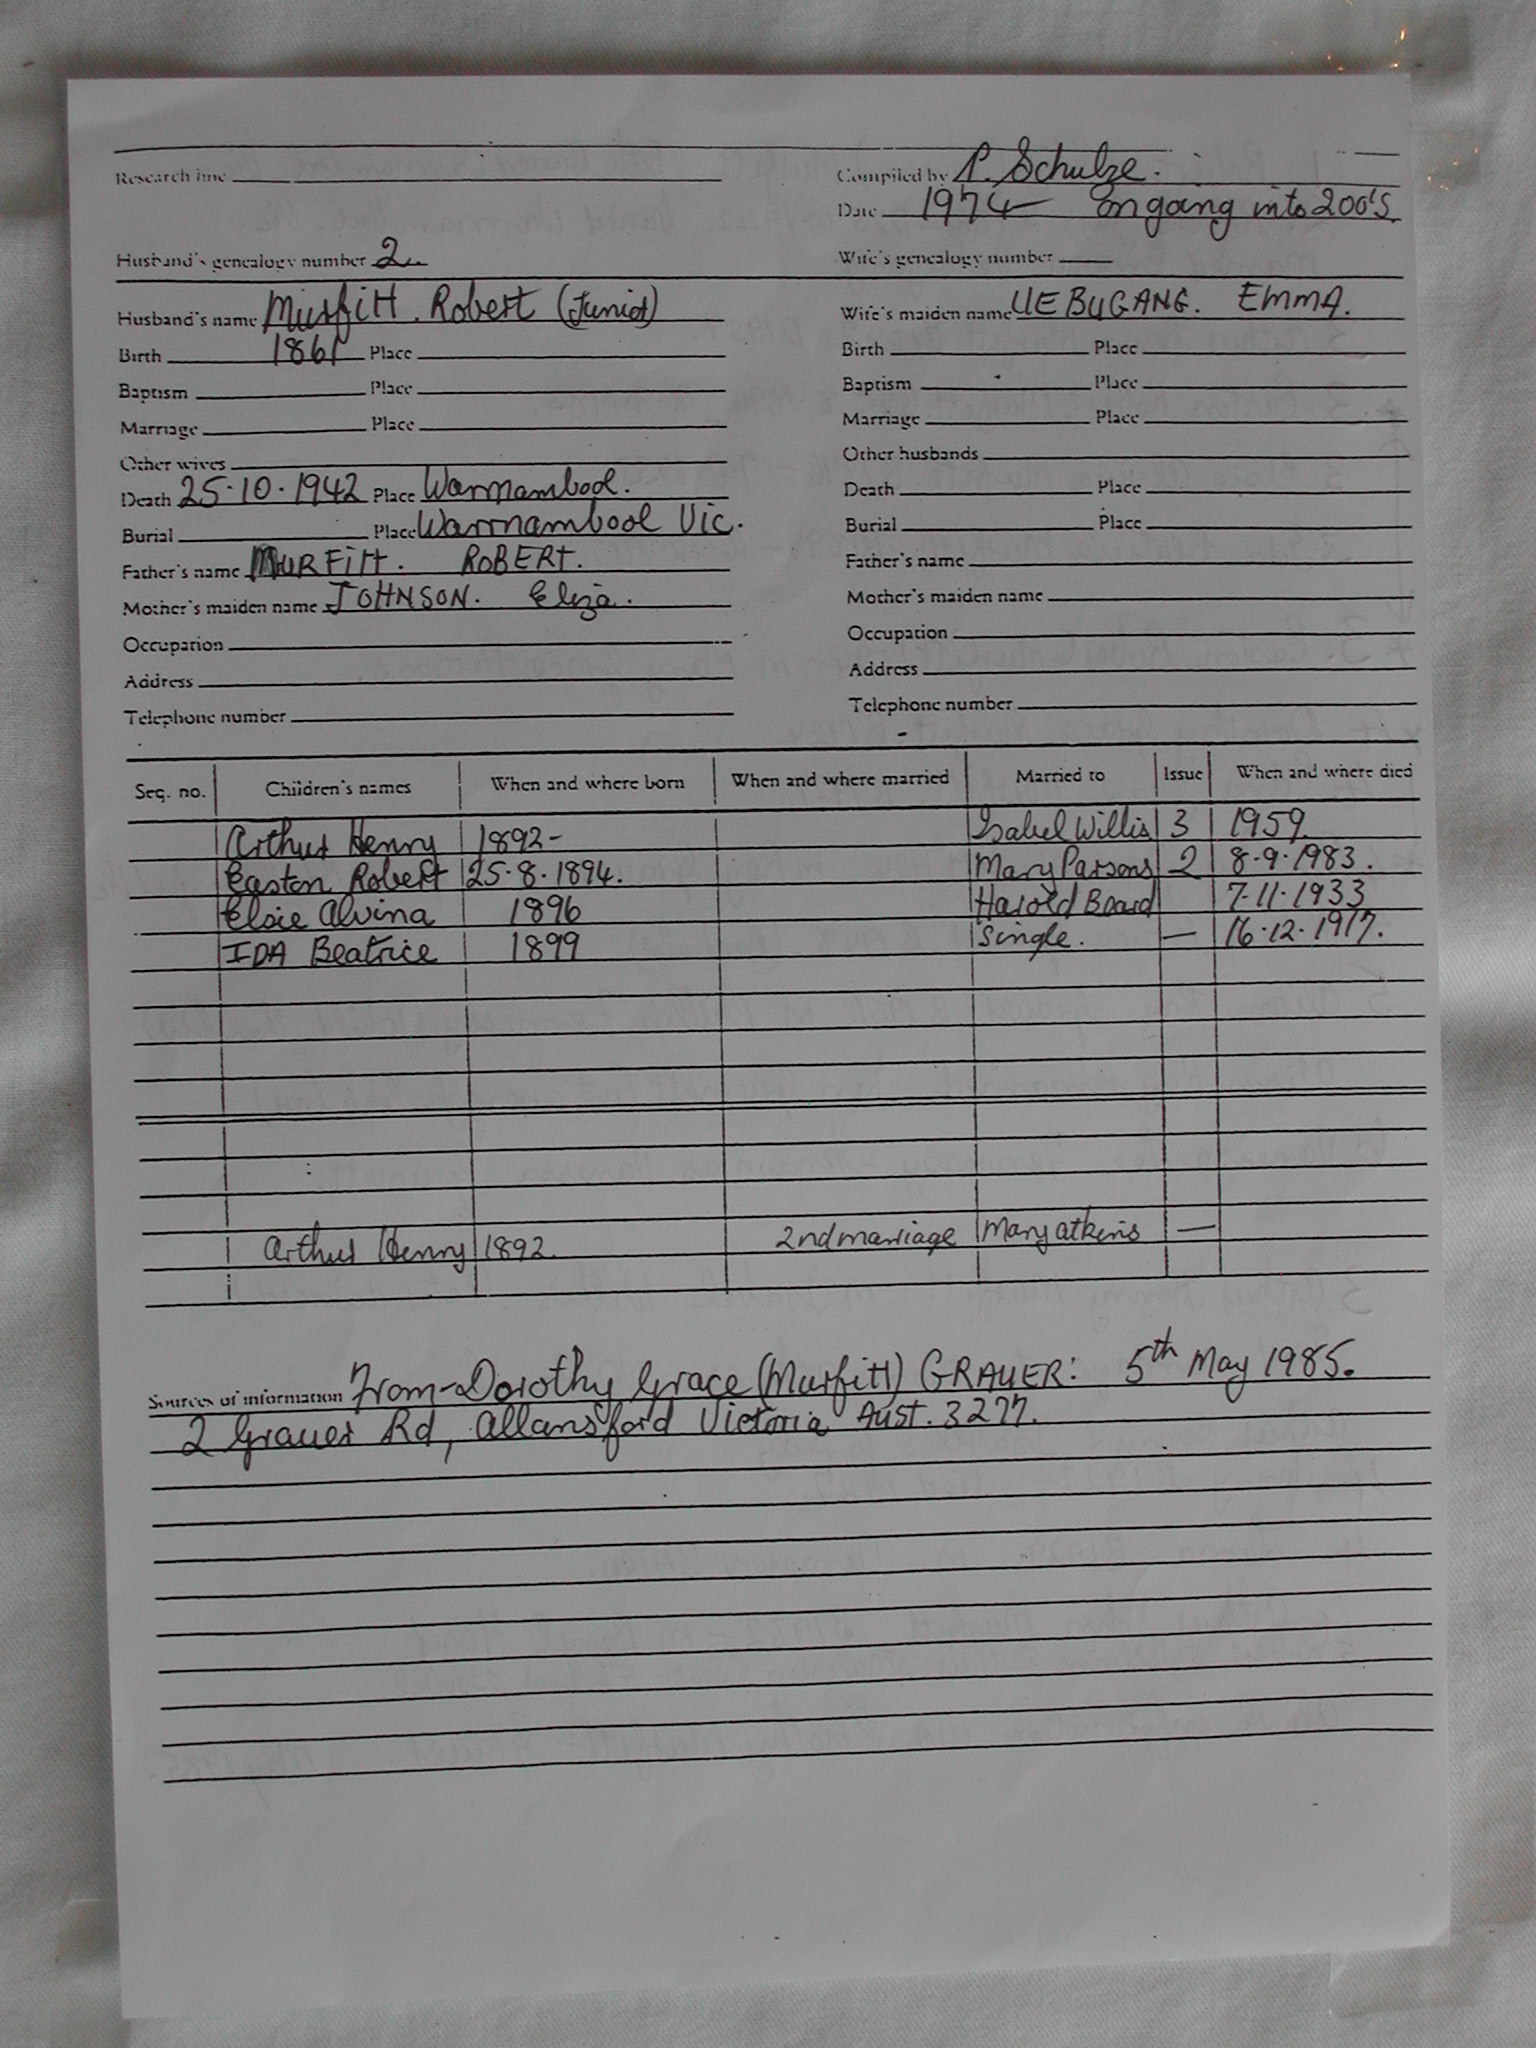 Research line
Compiled by P. Schulze.
Date 1974 — Ongoing into 200's.
Husband's genealogy number 2
Wife's genealogy number
Husband's name Murfitt. Robert (Junior)
Wife's maiden name UEBUGANG. EMMA.
Birth 1861 Place
Birth Place
Baptism Place
Baptism Place
Marriage Place
Marriage Place
Other wives
Other husbands
Death 25.10.1942 Place Warrnambool.
Death Place
Burial Place Warrnambool Vic.
Burial Place
Father's name MURFITT. ROBERT.
Father's name
Mother's maiden name JOHNSON. Eliza.
Mother's maiden name
Occupation
Occupation
Address
Address
Telephone number
Telephone number
Seq. no. Children's names When and where born When and where married Married to Issue When and where died
Arthur Henry 1892- Isabel Willis 3 1959
Easton Robert 25.8.1894. Mary Parsons 2 8.9.1983.
Elsie Alvina 1896 Harold Board 7.11.1933
IDA Beatrice 1899 Single. — 16.12.1917.
Arthur Henry 1892. 2nd marriage Mary Atkins —
Sources of information From-Dorothy Grace (Murfitt) GRAUER: 5th May 1985.
2 Grauer Rd, Allansford Victoria Aust. 3277.